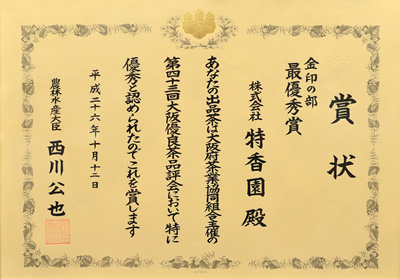 賞状
金印の部
最優秀賞
株式会社 特香園 殿
あなたの出品茶は大阪府茶業協同組合主催の
第四十三回大阪優良茶品評会において特に
優秀と認められたのでこれを賞します
平成二十六年十月十二日
農林水産大臣 西川公也